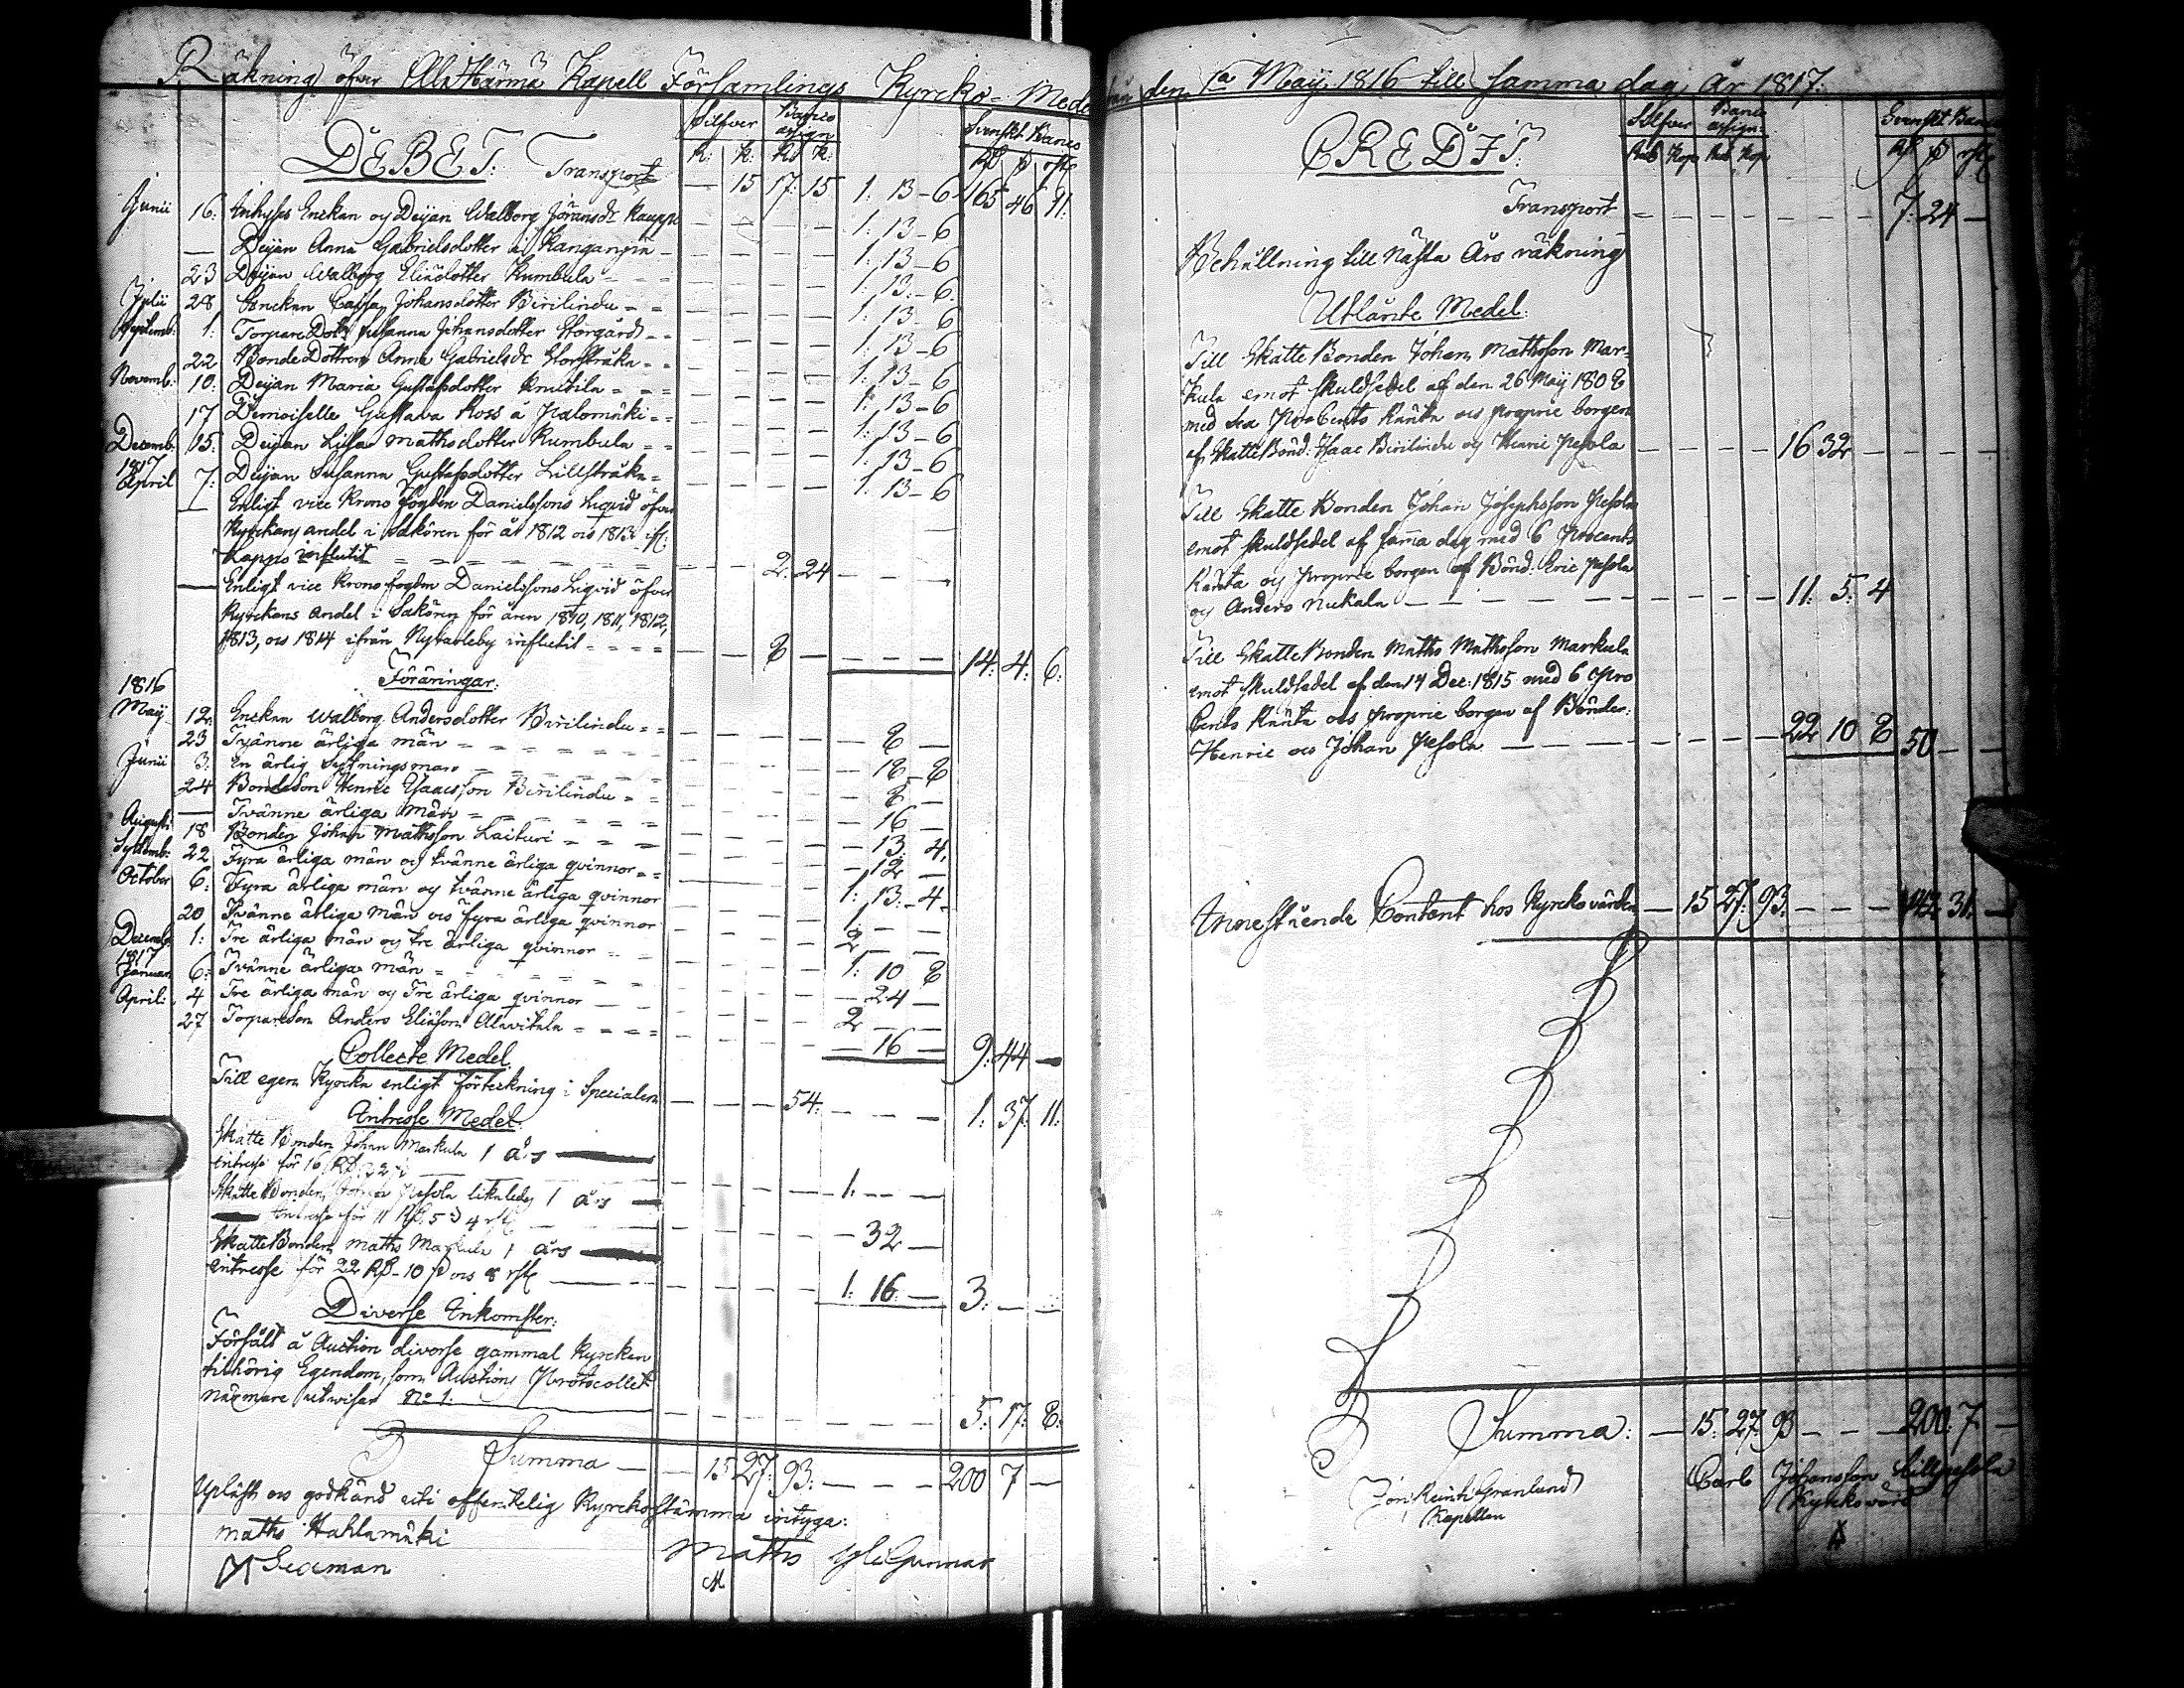 Räkning öfver Alahärmä Kapell Församlings Kyrcko-Medel
DEBET. Transport
Silfver Banco assign Svenskt Banco
R: k: Rb k: Rd ß rst
— 15 17: 15 1: 13 - 6 165 46 11:
Junii 16: Inhyses Enckan og Deijan Walborg Jöransdr Kauppi — — — — 1: 13 - 6
— Deijan Anna Gabrielsdotter — — — — 1: 13 - 6
23 Deijan Walborg Eliædotter Rumbula — — — — 1: 13 - 6
Julii 28 Enckan Caisa Johansdotter Birilindu — — — — 1: 13 - 6
Septemb: 1: Torpare Dotr Susanna Johansdotter Storgård — — — — 1: 13 - 6
22 Bonde Dottren Anna Gabrielsdr Storstråka — — — — 1: 13 - 6
Novemb: 10: Deijan Maria Gustafsdotter Knutila — — — — 1: 13 - 6
17 Demoiselle Gustava Ross å Palomäki — — — — 1: 13 - 6
Decemb: 15: Deijan Lisa Mathsdotter Rumbula — — — — 1: 13 - 6
1817
April 7: Deijan Susanna Gustafsdotter Lillstråka — — — — 1: 13 - 6
— Enligt vice Krono Fogden Danielssons Liqvid öfver
Kyrckans andel i Sakören för år 1812 och 1813 ifr:
Kappo influtit — — 2: 24 — — —
— Enligt vice Krono fogden Danielssons Liqvid öfver
Kyrckans Andel i Saköres för åren 1810, 1811, 1812,
1813, och 1814 ifrån Nycarleby influtit — — 8 — — — — 14: 4: 6:
Föräringar:
1816
May 12 Enckan Walborg Andersdotter Birilindu — 8 —
23 Tvänne ärliga män — 18 - 8
Junii 3: En ärlig Sytningsman — 8 —
24 Bondeson Henric Isaacsson Birilindu — 16 —
— Tvänne ärliga män — 13: 4,
Augusti: 18 Bonden Johan Mathsson Laituri — 12 —
Septemb: 22 Fyra ärliga män och tvänne ärliga qvinnor 1: 13: - 4
October 6: Fyra ärliga män og tvänne ärliga qvinnor 1 — —
20 Tvänne ärliga män och fyra ärliga qvinnor 2 — —
Decemb 1: Tre ärliga män og tre ärliga qvinnor 1: 10 8
1817
Januari 6: Tvänne ärliga män — 24 —
April: 4 Tre ärliga män og Tre ärliga qvinnor 2 — —
27 Torpareson Anders Eliæson Alavitala — 16 — 9: 44 —
Collecte Medel
Till egen Kyrcka enligt förteckning i Specialen — — 54: — — — 1: 37: 11:
Intresse Medel:
Skatte Bonden Johan Markula 1 års
intresse för 16 Rd 32 ß — — — — 1: — —
Skatte Bonden Johan Pesola likaledes 1 års
Intresse för 11 Rd 5 ß 4 rst — — — — — 32 —
Skatte Bonden Maths Markula 1 års
intresse för 22 Rd - 10 ß och 8 rst — — — — 1: 16 — 3: — —
Diverse Inkomster:
Försålt å Auction diverse gammal Kyrckan
tilhörig Egendom, som Auctions Protocollet
närmare utwisar No 1: — — — — — — — 5: 17: 8:
Summa — — 15 27: 93: — — — 200 7 —
Upläst och godkänd uti offentelig Kyrckostämma intyga:
Maths Hahlamäki
Seaman
Maths YliGunnar
M
från den 1a Maij 1816 till samma dag År 1817:
CREDIT:
Silfver Banco assign: Svenskt Banco
Rub Kop Rub Kop Rd ß rst
Transport — — — — — — — 7: 24 —
Behållning till Nästa Års räkning
Utlånte Medel:
Till Skatte Bonden Johan Mathsson Mar-
kula emot skuldsedel af den 26 May 1808
med Sex Pro Cents Ränta och proprie borgen
af Skatte Bönd: Isaac Birilindu og Henric Pesola — — — — 16 32 — — — —
Till Skatte Bonden Johan Josephsson Pesola
emot skuldsedel af samma dag med 6 Procents
Ränta og proprie borgen af Bönd: Eric Pesola
og Anders Nukala — — — — — — 11: 5: 4
Till Skatte Bonden Maths Mathsson Markula
emot skuldsedel af den 14 Dec: 1815 med 6 Pro
Cents Ränta och proprie borgen af Bönder:
Henric och Johan Pesola — — — — — — 22 10 8 50 — —
Innestående Contant hos Kyrckovärden — 15 27: 93: — — — 142: 31: —
Summa: — 15: 27: 93 — — — 200: 7 —
Granlund
Kapellan
Carl Johansson Lillpesola
Kyrckovärd